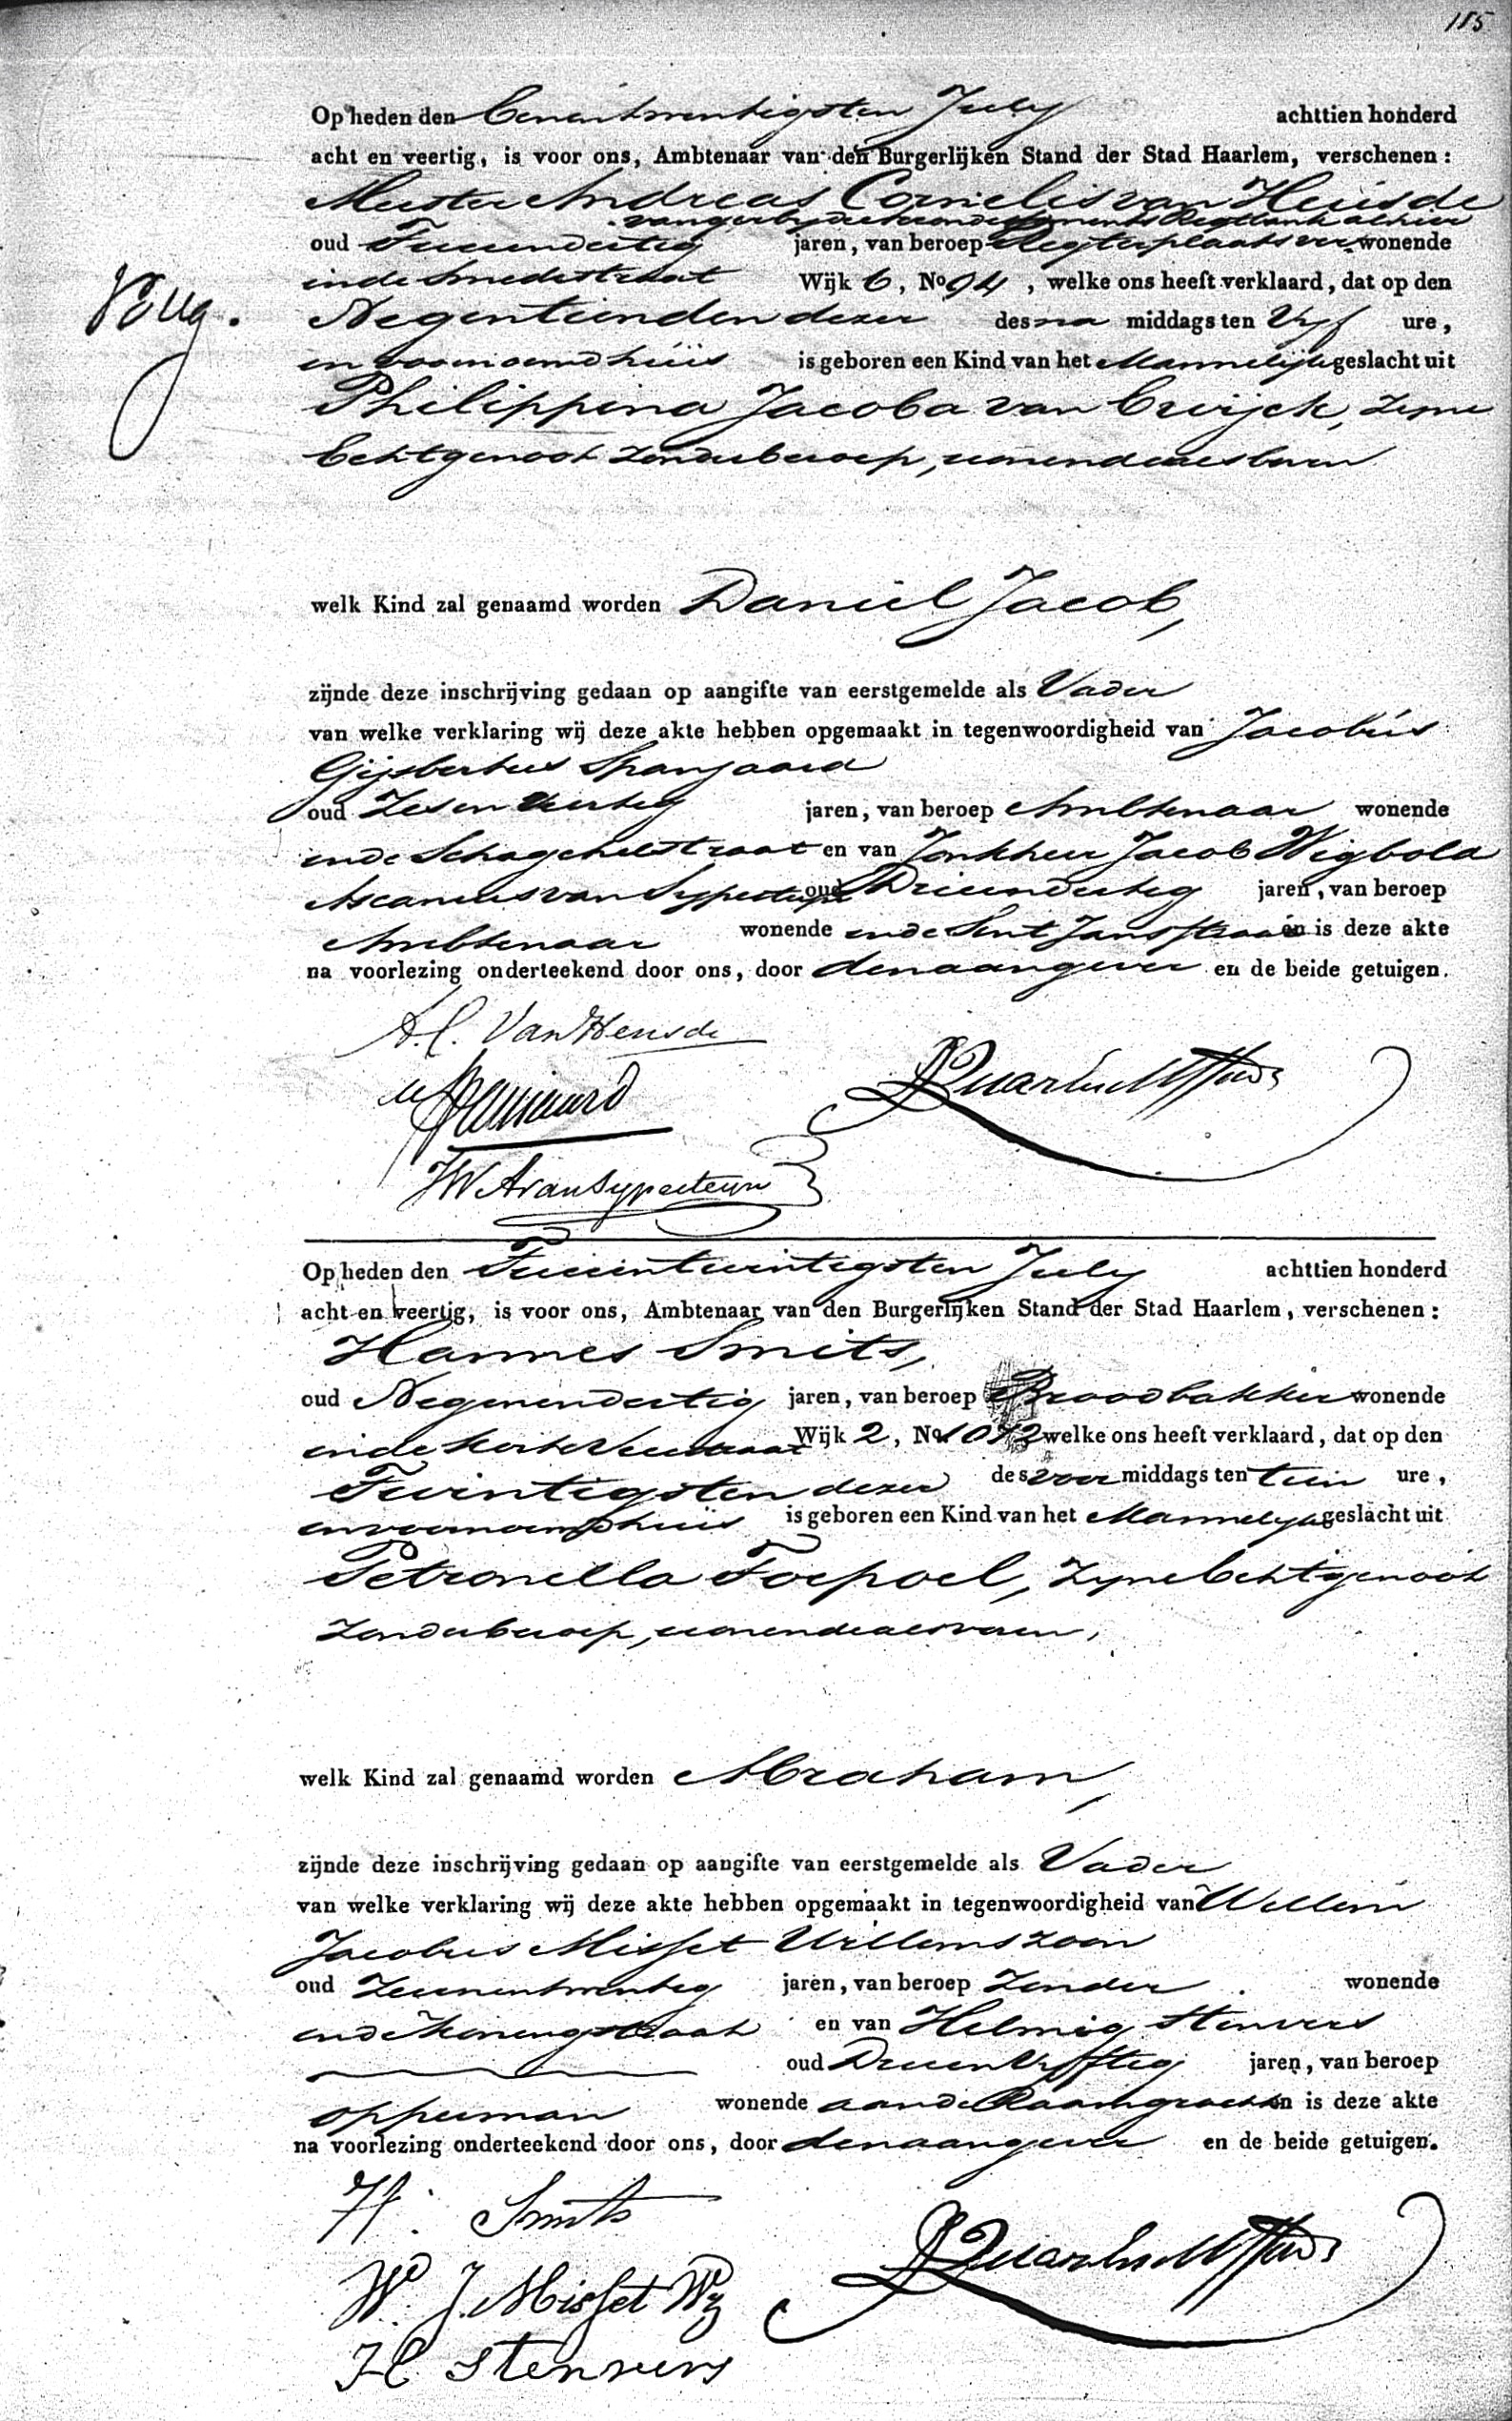 155
Op heden den Eenentwentigsten July achttien honderd
acht en veertig, is voor ons, Ambtenaar van den Burgerlijken Stand der Stad Haarlem, verschenen:
Meester Andreas Cornelis van Heusde
vanger by de Arrondissements Regtbank alhier
oud Tweeendertig jaren, van beroep Regterplaatsver- wonende
in de Smedestraat Wijk 6, No 94, welke ons heeft verklaard, dat op den
Negentienden dezer des na middags ten Vyf ure,
in voornoemd huis is geboren een Kind van het Mannelijk geslacht uit
Philippina Jacoba van Cruijck, zyne
Echtgenoot zonder beroep, wonende als boven
welk Kind zal genaamd worden Daniel Jacob,
zijnde deze inschrijving gedaan op aangifte van eerstgemelde als Vader
van welke verklaring wij deze akte hebben opgemaakt in tegenwoordigheid van Jacobus
Gijsbertus Spanjaard
oud Zesenveertig jaren, van beroep Ambtenaar wonende
in de Schagchelstraat en van Jonkheer Jacob Wigbold
Ascanius van Sypesteyn oud Drieendertig jaren, van beroep
Ambtenaar wonende in de Sint Jansstraat en is deze akte
na voorlezing onderteekend door ons, door den aangever en de beide getuigen.
A. C. Van Heusde
Spanjaard
JW A van Sypesteyn
Op heden den Tweeentwintigsten July achttien honderd
acht en veertig, is voor ons, Ambtenaar van den Burgerlijken Stand der Stad Haarlem, verschenen:
Hannes Smits,
oud Negenendertig jaren, van beroep Broodbakker wonende
in de Korte Veerstraat Wijk 2, No 1072 welke ons heeft verklaard, dat op den
Twintigsten dezer des voor middags ten tien ure,
in voornoemd huis is geboren een Kind van het Mannelyk geslacht uit
Petronella Toepoel, zyne Echtgenoot
zonder beroep, wonende als voren,
welk Kind zal genaamd worden Abraham,
zijnde deze inschrijving gedaan op aangifte van eerstgemelde als Vader
van welke verklaring wij deze akte hebben opgemaakt in tegenwoordigheid van Willem
Jacobus Misset Willemszoon
oud Zevenentwentig jaren, van beroep Zonder wonende
in de Koningstraat en van Helmig Stenvers
oud Drieenvyfftig jaren, van beroep
opperman wonende aan de Raamgracht en is deze akte
na voorlezing onderteekend door ons, door den aangever en de beide getuigen.
H. Smits
W. J. Misset Wz
H Stenvers